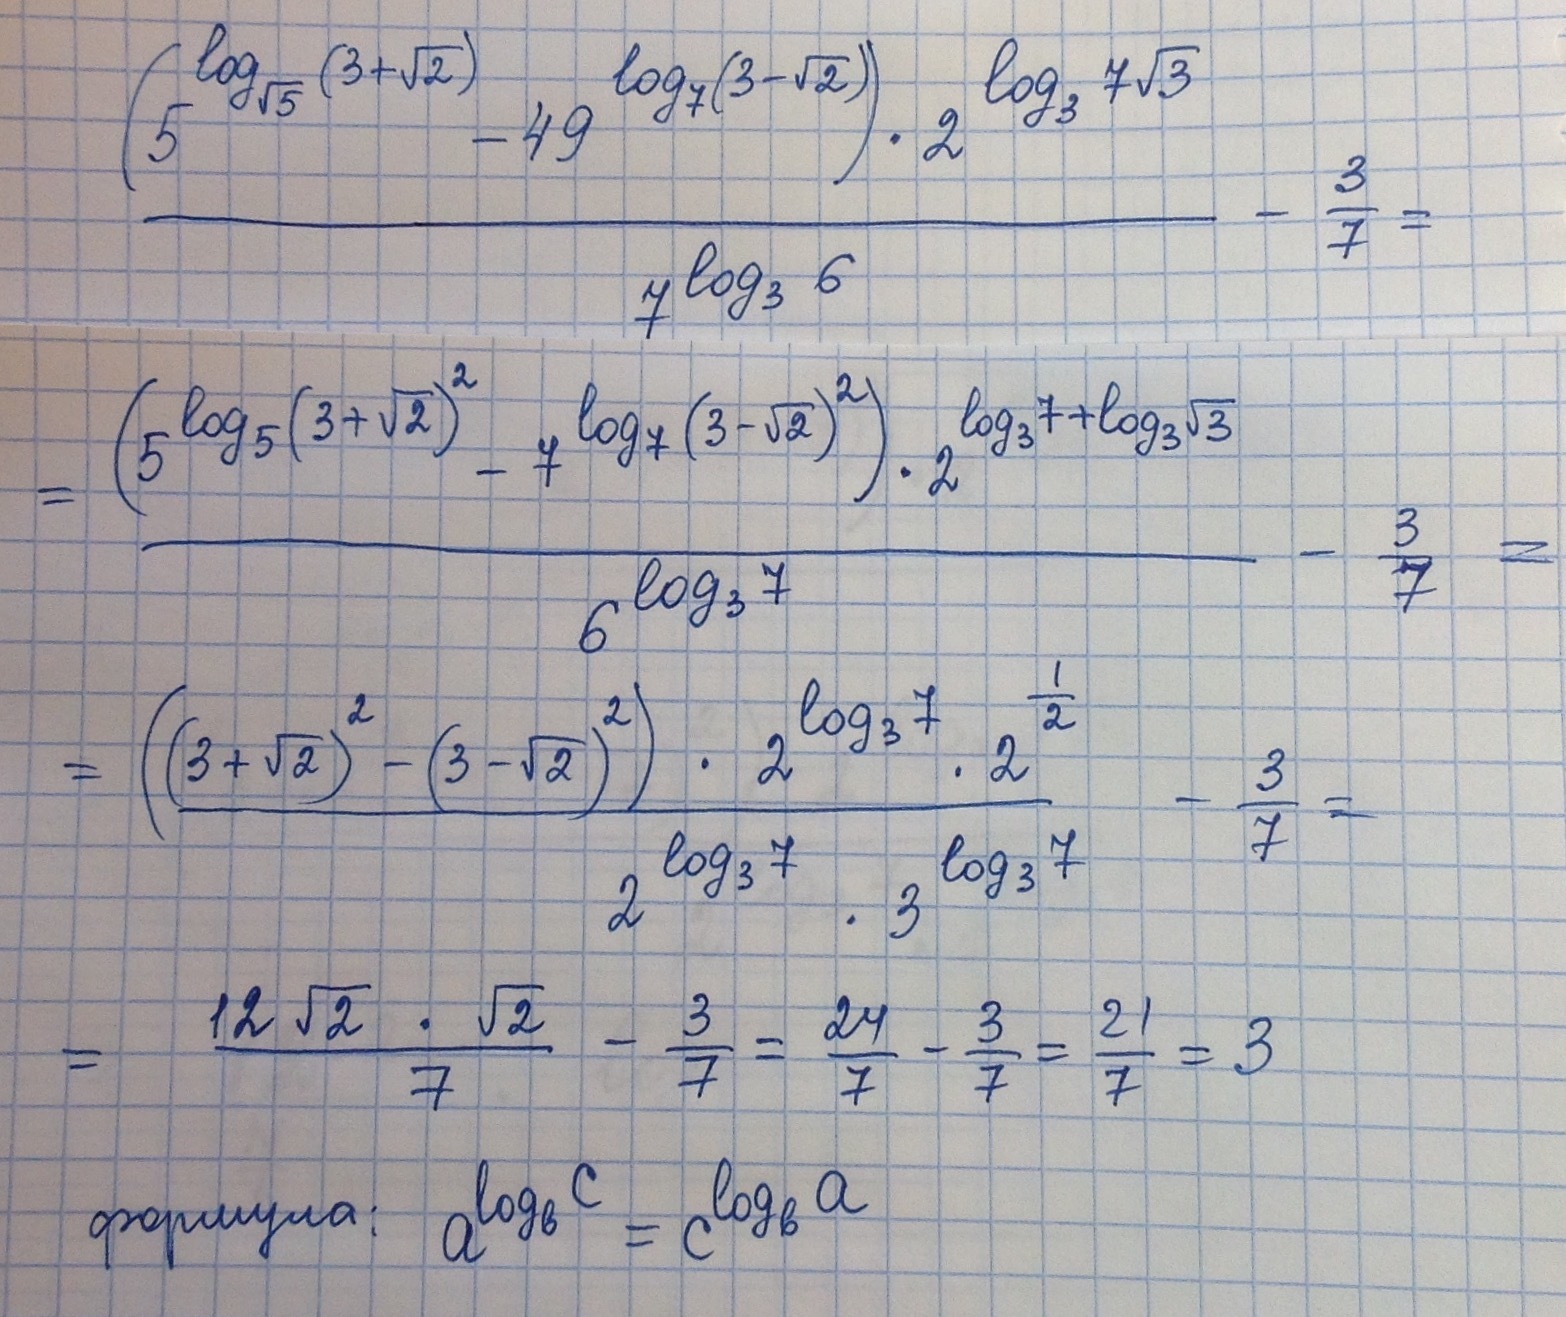 (5^{log_{√5}(3+√2)} - 49^{log_7(3-√2)}) · 2^{log_3 7√3} / 7^{log_3 6} - 3/7 =
= (5^{log_5(3+√2)^2} - 7^{log_7(3-√2)^2}) · 2^{log_3 7 + log_3 √3} / 6^{log_3 7} - 3/7 =
= ((3+√2)^2 - (3-√2)^2) · 2^{log_3 7} · 2^{1/2} / 2^{log_3 7} · 3^{log_3 7} - 3/7 =
= 12√2 · √2 / 7 - 3/7 = 24/7 - 3/7 = 21/7 = 3
формула: a^{log_в c} = c^{log_в a}